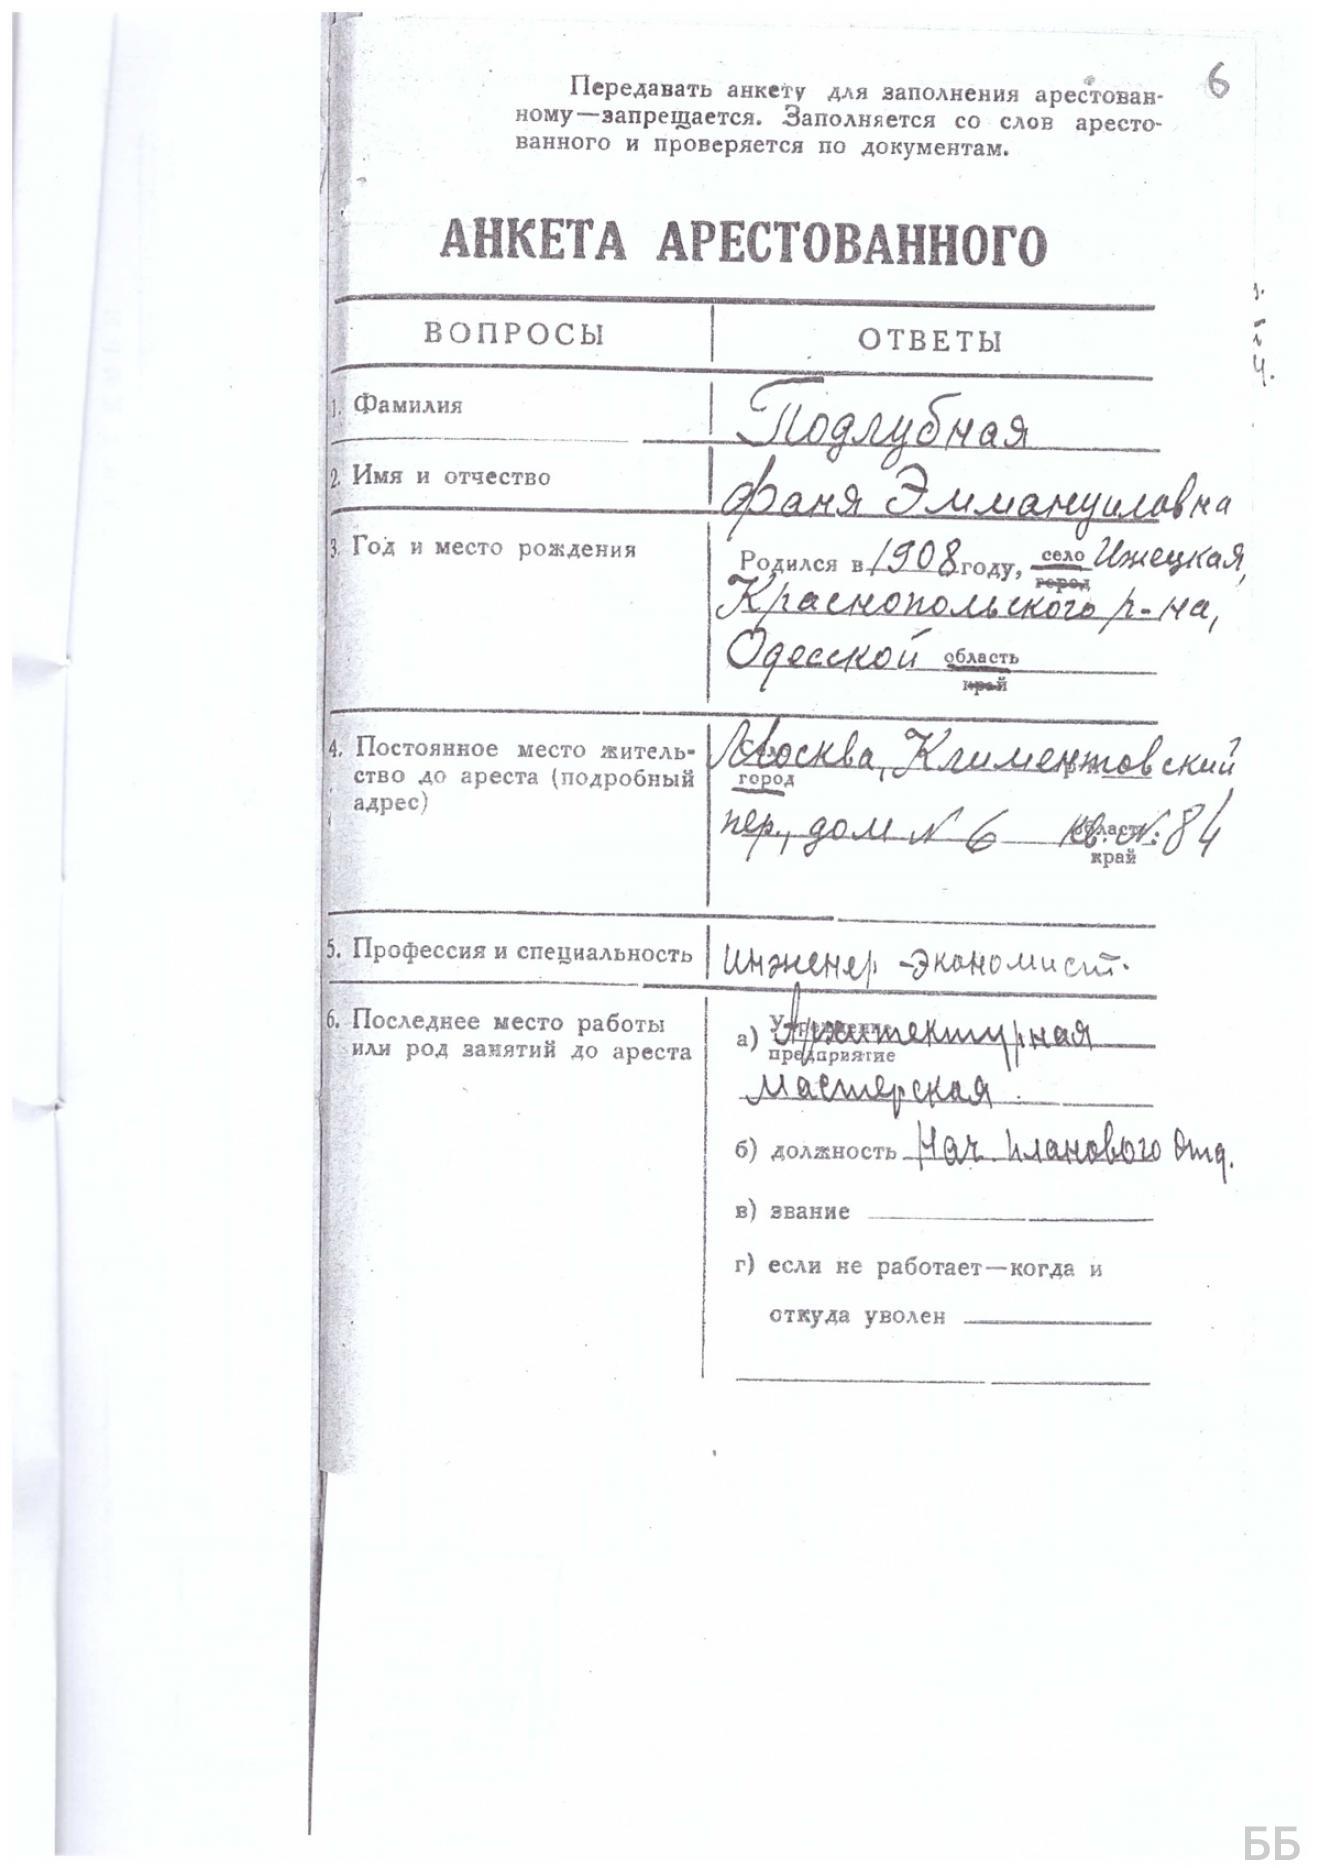 6
Передавать анкету для заполнения арестован-
ному—запрещается. Заполняется со слов аресто-
ванного и проверяется по документам.
АНКЕТА АРЕСТОВАННОГО
ВОПРОСЫ ОТВЕТЫ
1. Фамилия Подлубная
2. Имя и отчество Фаня Эммануиловна
3. Год и место рождения Родился в 1908 году, село Ижецкая,
город
Краснопольского р-на,
Одесской область
край
4. Постоянное место житель- Москва, Климентовский
ство до ареста (подробный город
адрес)
пер., дом № 6 кв. №: 84
область
край
5. Профессия и специальность инженер-экономист.
6. Последнее место работы а) Учреждение Архитектурная
или род занятий до ареста предприятие
мастерская
б) должность Нач. планового отд.
в) звание
г) если не работает—когда и
откуда уволен
ББ